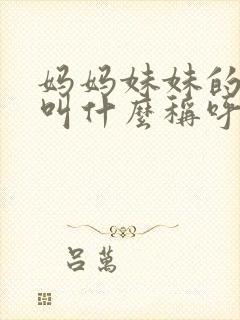 妈妈妹妹的
叫什麼稱呼
吕萬